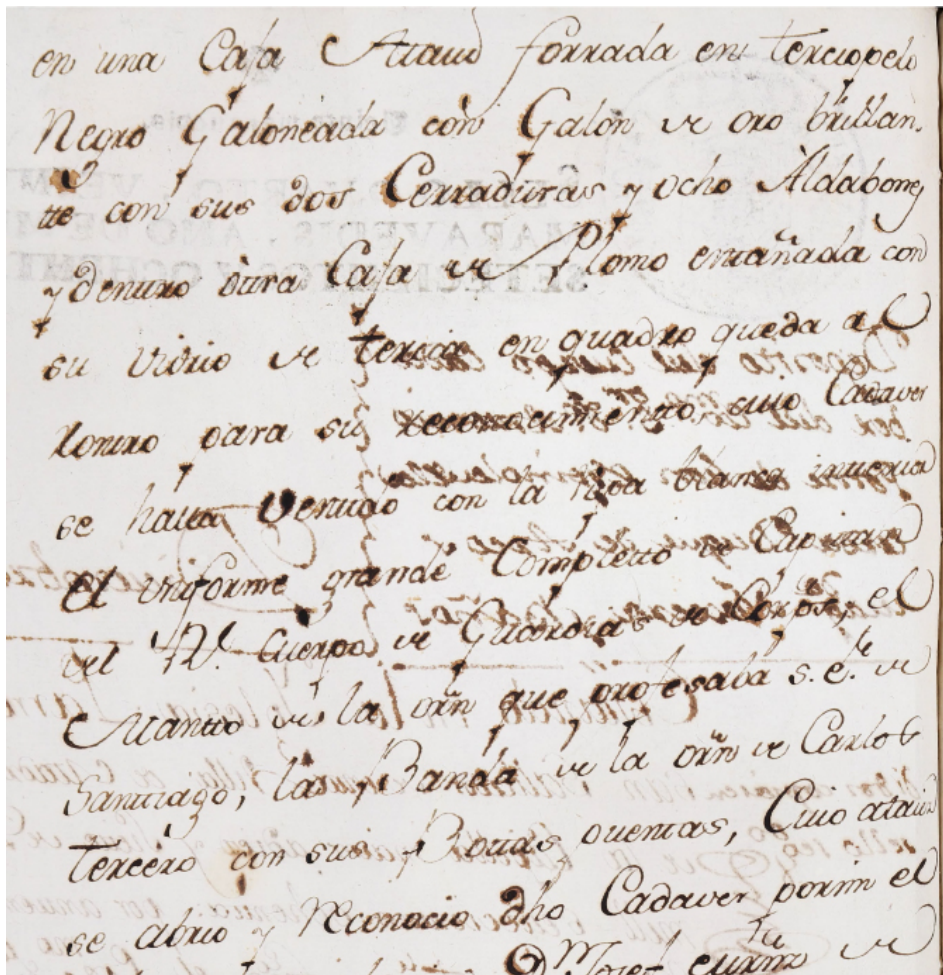 en una Caja Ataud forrada en terciopelo
Negro Galoneada con Galon de oro brillan-
tte con sus dos Cerraduras y ocho Aldabones
y dentro otra Caja de Plomo enttañada con
su vidrio de tercia en quadro queda al
Rostro para su reconocimiento, cuio Cadaver
se halla vestido con la ropa blanca interior
el uniforme grande Completto de Capitan
del Rl. Cuerpo de Guardias de Corps, el
Manto de la orn que profesaba S.E. de
Santiago, la Banda de la orn de Carlos
tercero con sus Botas puestas, Cuio ataud
se abrio y reconocio dho Cadaver por mi el